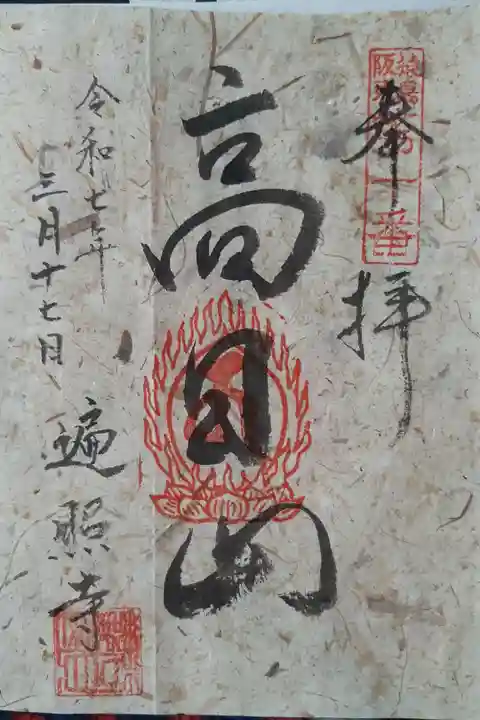 猿島
阪東
第一番
奉拝
高
山
令和七年
三月十七日
遍照寺